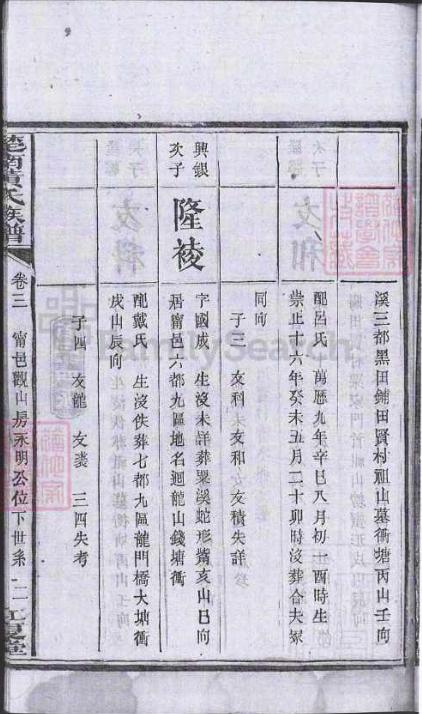 溪三都黑田鋪田賢村祖山墓衝塘丙山壬向
配呂氏 萬曆九年辛巳八月初十酉時生
崇正十六年癸未五月二十卯時沒葬合夫冢
同向
子三 友科 友和 友積失詳
興銀
次子
隆祾
字國成 生沒未詳葬粟溪蛇形觜亥山巳向
居甯邑六都九區地名迴龍山錢塘衝
配戴氏 生沒佚葬七都九區龍門橋大塘衝
戌山辰向
子四 友龍 友裘 三四失考
楚南黃氏族譜
卷三
甯邑觀山房永明公位下世系
二
江夏堂
FamilySearch